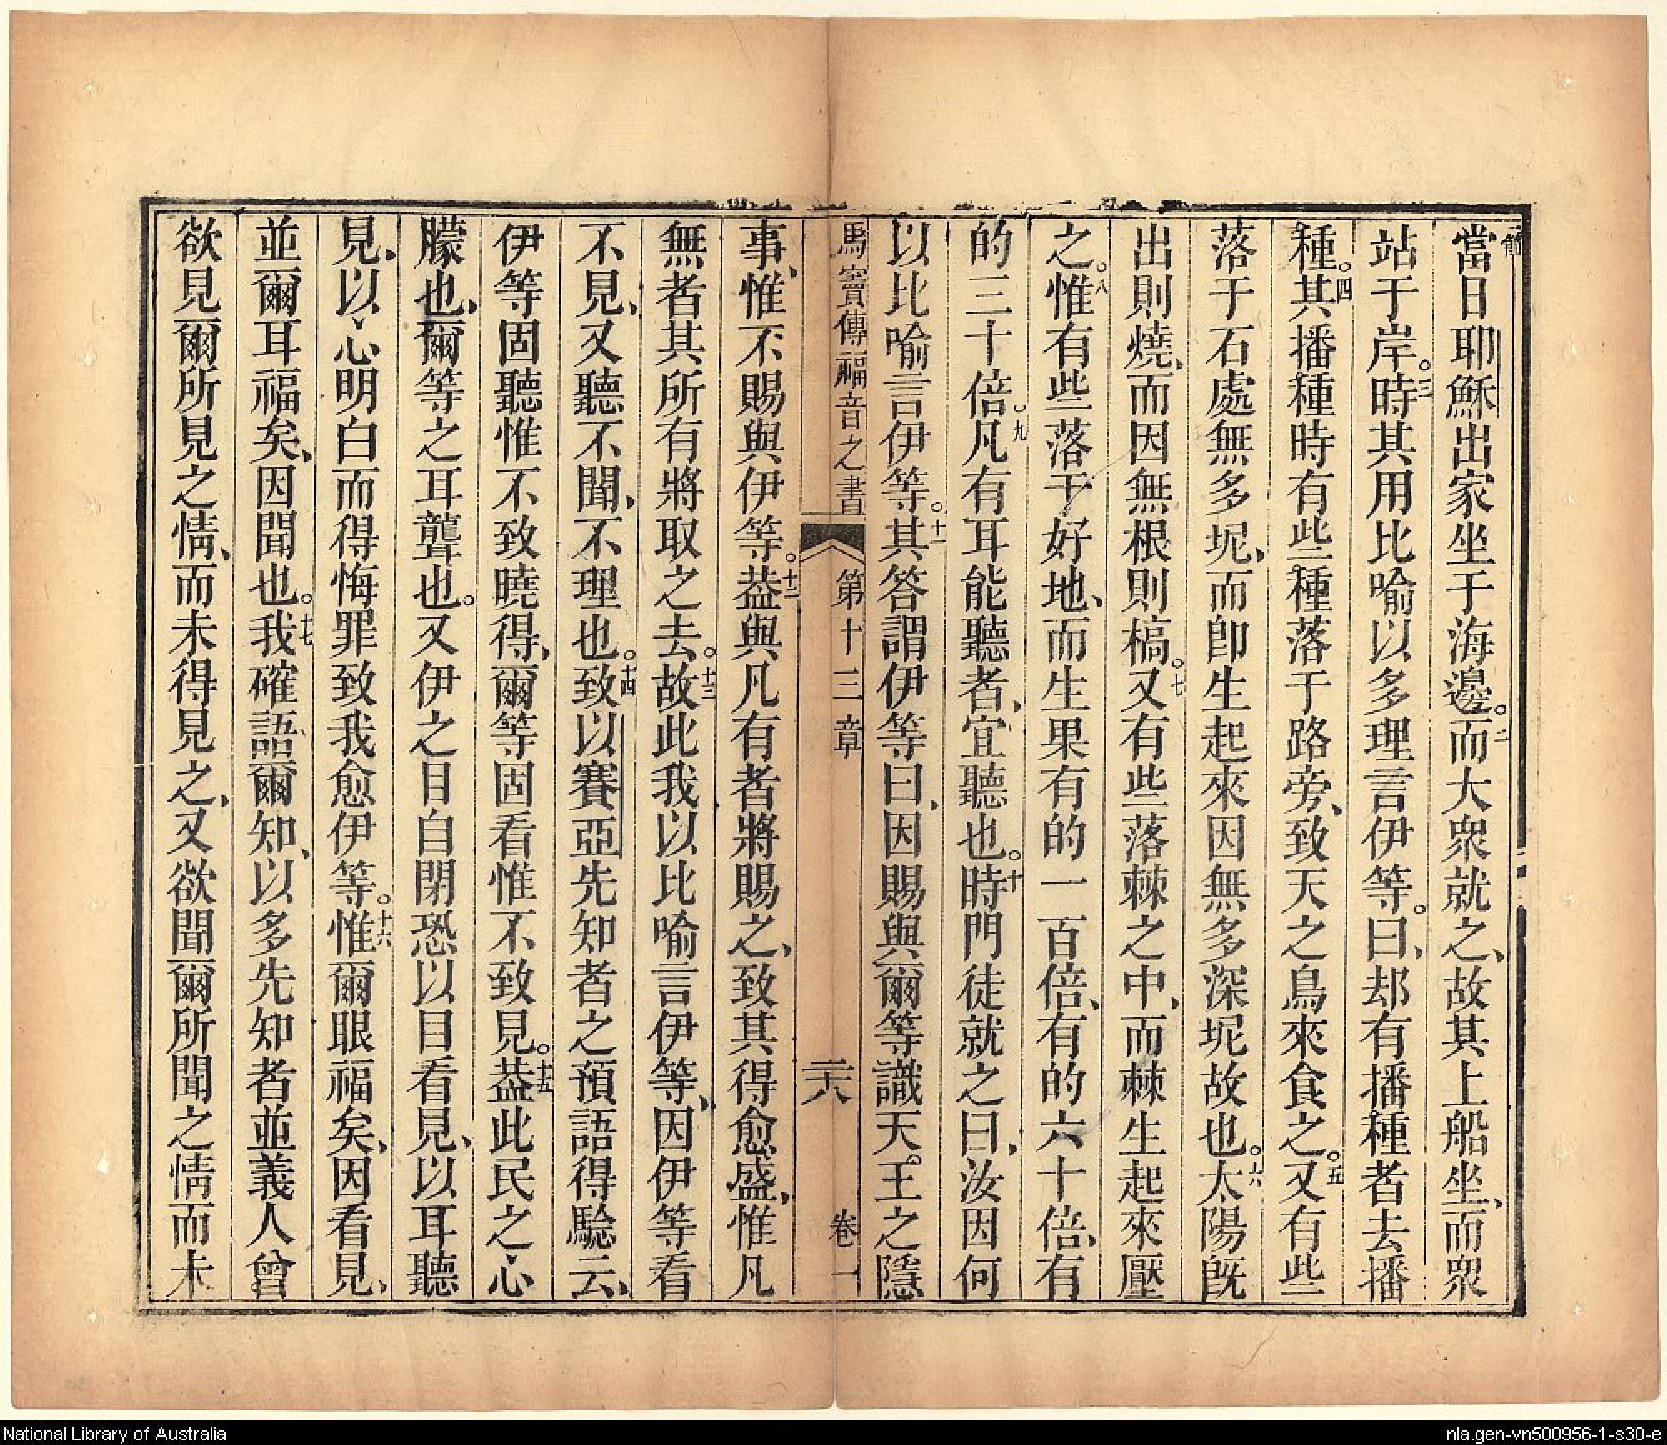 當日耶穌出家坐于海邊。二而大衆就之、故其上船坐、而衆
站于岸。三時其用比喻以多理言伊等。曰、却有播種者去播
種。四其播種時有些種落于路旁、致天之鳥來食之。五又有些
落于石處無多坭、而卽生起來因無多深坭故也。六太陽旣
出則燒、而因無根則槁。七又有些落棘之中、而棘生起來壓
之。八惟有些落于好地、而生果有的一百倍、有的六十倍、有
的三十倍。九凡有耳能聽者、宜聽也。十時門徒就之曰、汝因何
以比喻言伊等。十一其答謂伊等曰、因賜與爾等識天。王之隱
馬竇傳福音之書 第十三章 二十八 卷一
事、惟不賜與伊等。十二葢與凡有者將賜之、致其得愈盛、惟凡
無者其所有將取之去。十三故此我以比喻言伊等、因伊等看
不見、又聽不聞、不理也。十四致以賽亞先知者之預語得騐云、
伊等固聽惟不致曉得、爾等固看惟不致見。十五葢此民之心
朦也、爾等之耳聾也。又伊之目自閉恐以目看見、以耳聽
見、以心明白而得悔罪致我愈伊等。十六惟爾眼福矣、因看見、
並爾耳福矣、因聞也。十七我確語爾知、以多先知者並義人曾
欲見爾所見之情、而未得見之、又欲聞爾所聞之情而未
National Library of Australia
nla.gen-vn500956-1-s30-e